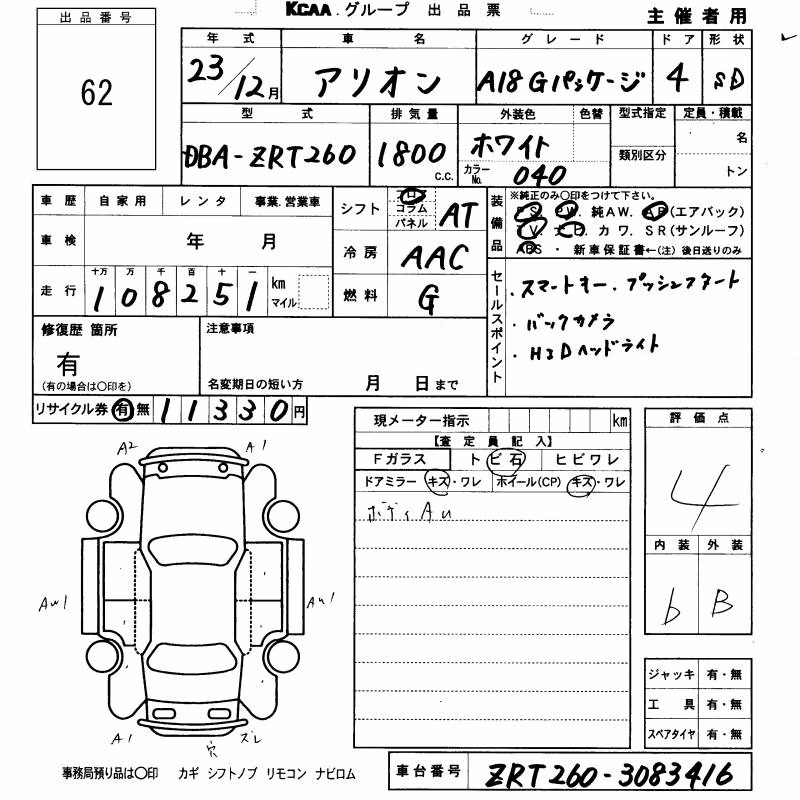 KCAA.グループ 出品票
主催者用
出品番号
62
年式 車名 グレード ドア 形状
23/12月 アリオン A18 Gパッケージ 4 SD
型式 排気量 外装色 色替 型式指定 定員・積載
DBA-ZRT260 1800 c.c. ホワイト 類別区分 名
カラーNo. 040 トン
車歴 自家用 レンタ 事業.営業車
車検 年 月
走行 十万 万 千 百 十 一
108251 km マイル
シフト フロア コラム パネル AT
冷房 AAC
燃料 G
装備品
※純正のみ○印をつけて下さい。
P.S. P.W. 純A.W. A.B(エアバック)
T.V. ナビ. カワ. S.R(サンルーフ)
ABS ・ 新車保証書←(注) 後日送りのみ
セールスポイント
・スマートキー・プッシュスタート
・バックカメラ
・HIDヘッドライト
修復歴 箇所
有
(有の場合は○印を)
注意事項
名変期日の短い方 月 日まで
リサイクル券 有 無 11330円
現メーター指示 km
【査定員記入】
Fガラス ト ビ石 ヒビワレ
ドアミラー キズ・ワレ ホイール(CP) キズ・ワレ
ボディAu
評価点
4
内装 外装
b B
A2 A1
Aw1 Au1
A1 穴 ズレ
ジャッキ 有・無
工具 有・無
スペアタイヤ 有・無
事務局預り品は○印 カギ シフトノブ リモコン ナビロム
車台番号 ZRT260-3083416